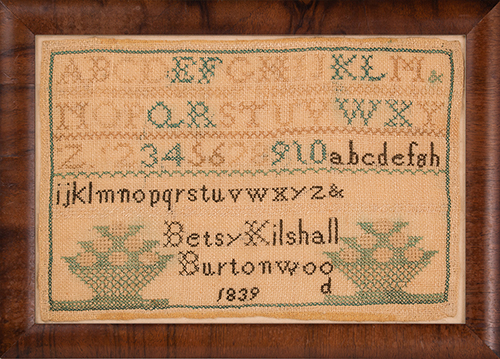 ABCDEFGHIJKLM&
NOPQRSTUVWXY
Z. 12345678910abcdefgh
ijklmnopqrstuvwxyz&
Betsy Kilshall
Burtonwoo
d
1839